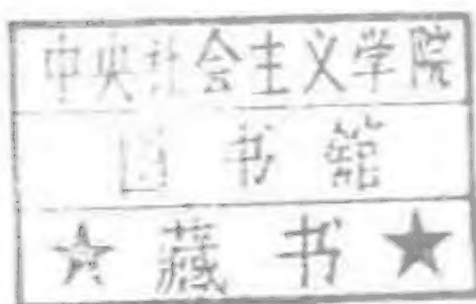 中央社会主义学院
图书館
☆藏书★